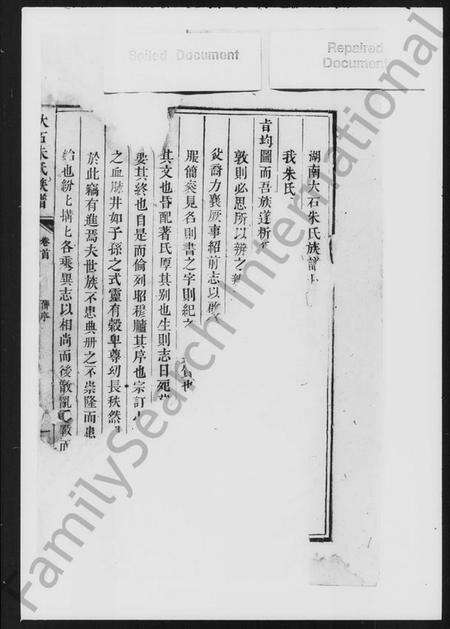 Soiled Document
Repaired Document
湖南大石朱氏族譜
我朱氏
均圖而吾族道析
敦則必思所以辨之
裔方襄厥事紹前志以
服簡奕見名則書之字則紀之
其文也昏配著氏厚其别也生則志日死
要其終也自是而倫列昭穆臚其序也宗訂
之血脉井如子孫之式靈有穀卑尊幼長秩然
於此竊有進焉夫世族不患典册之不崇隆而患
給也紛七搆七各乘異志以相尚而後散亂
大石朱氏族譜
卷首
舊序
FamilySearch International